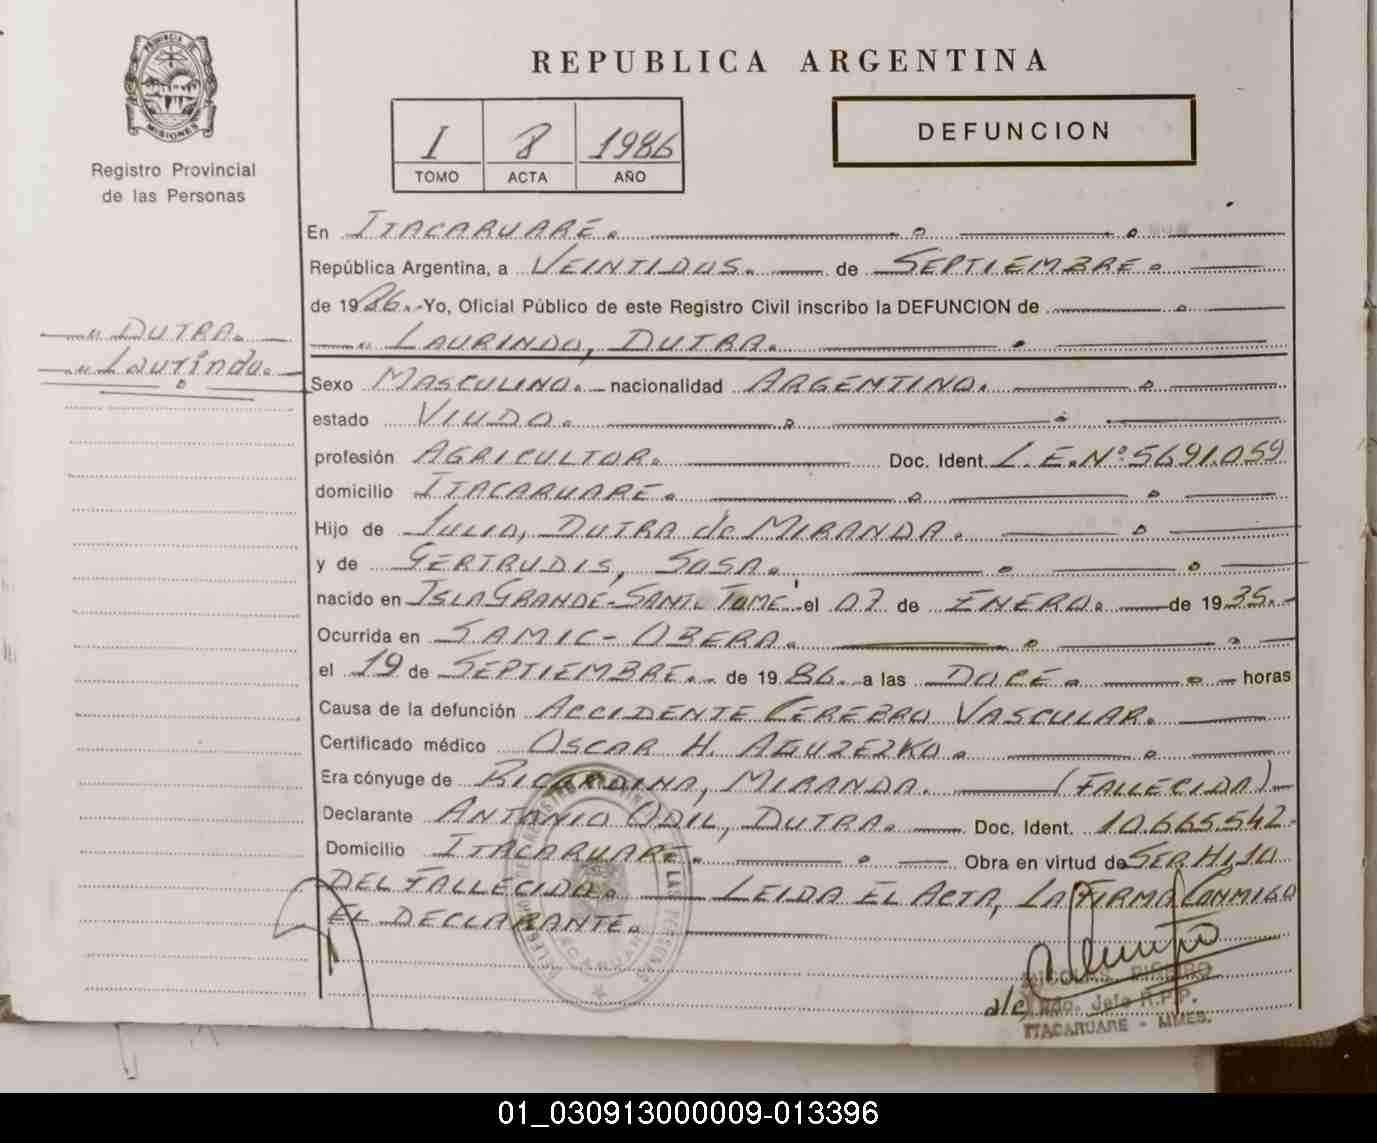 REPUBLICA ARGENTINA
PROVINCIA DE
MISIONES
Registro Provincial
de las Personas
I 8 1986
TOMO ACTA AÑO
DEFUNCION
En ITACARUARE.
República Argentina, a VEINTIDOS. de SEPTIEMBRE.
de 1986.- Yo, Oficial Público de este Registro Civil inscribo la DEFUNCION de
LAURINDO, DUTRA.
DUTRA.
Laurindo.
Sexo MASCULINO. nacionalidad ARGENTINO.
estado VIUDO.
profesión AGRICULTOR. Doc. Ident. L.E.Nº 5691.059
domicilio ITACARUARE.
Hijo de JULIO, DUTRA de MIRANDA.
y de GERTRUDIS, SOSA.
nacido en ISLA GRANDE-SANT. TOME' el 07 de ENERO. de 1935.-
Ocurrida en SAMIC-OBERA.
el 19 de SEPTIEMBRE.. de 1986. a las DOCE. horas
Causa de la defunción ACCIDENTE CEREBRO VASCULAR.
Certificado médico OSCAR H. AGUZEZKO.
Era cónyuge de RICARDINA, MIRANDA. (FALLECIDA)
Declarante ANTONIO ODIL, DUTRA. Doc. Ident. 10.665.542.
Domicilio ITACARUARE. Obra en virtud de SER HIJO
DEL FALLECIDO. LEIDA EL ACTA, LA FIRMA CONMIGO
EL DECLARANTE.
a/c
NICOLAS PIÑEIRO
Jefe R.P.P.
ITACARUARE - MNES.
01_030913000009-013396